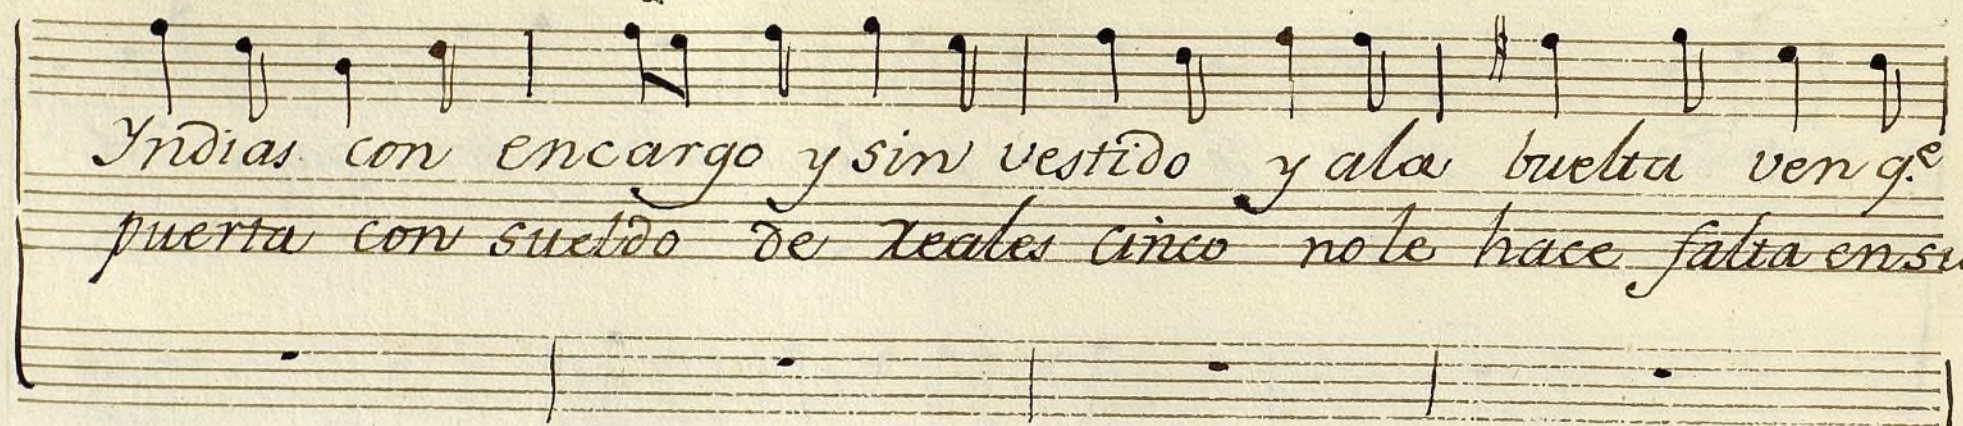 Yndias con encargo y sin vestido y ala buelta ven q.e
puerta con sueldo de reales cinco no le hace falta en su